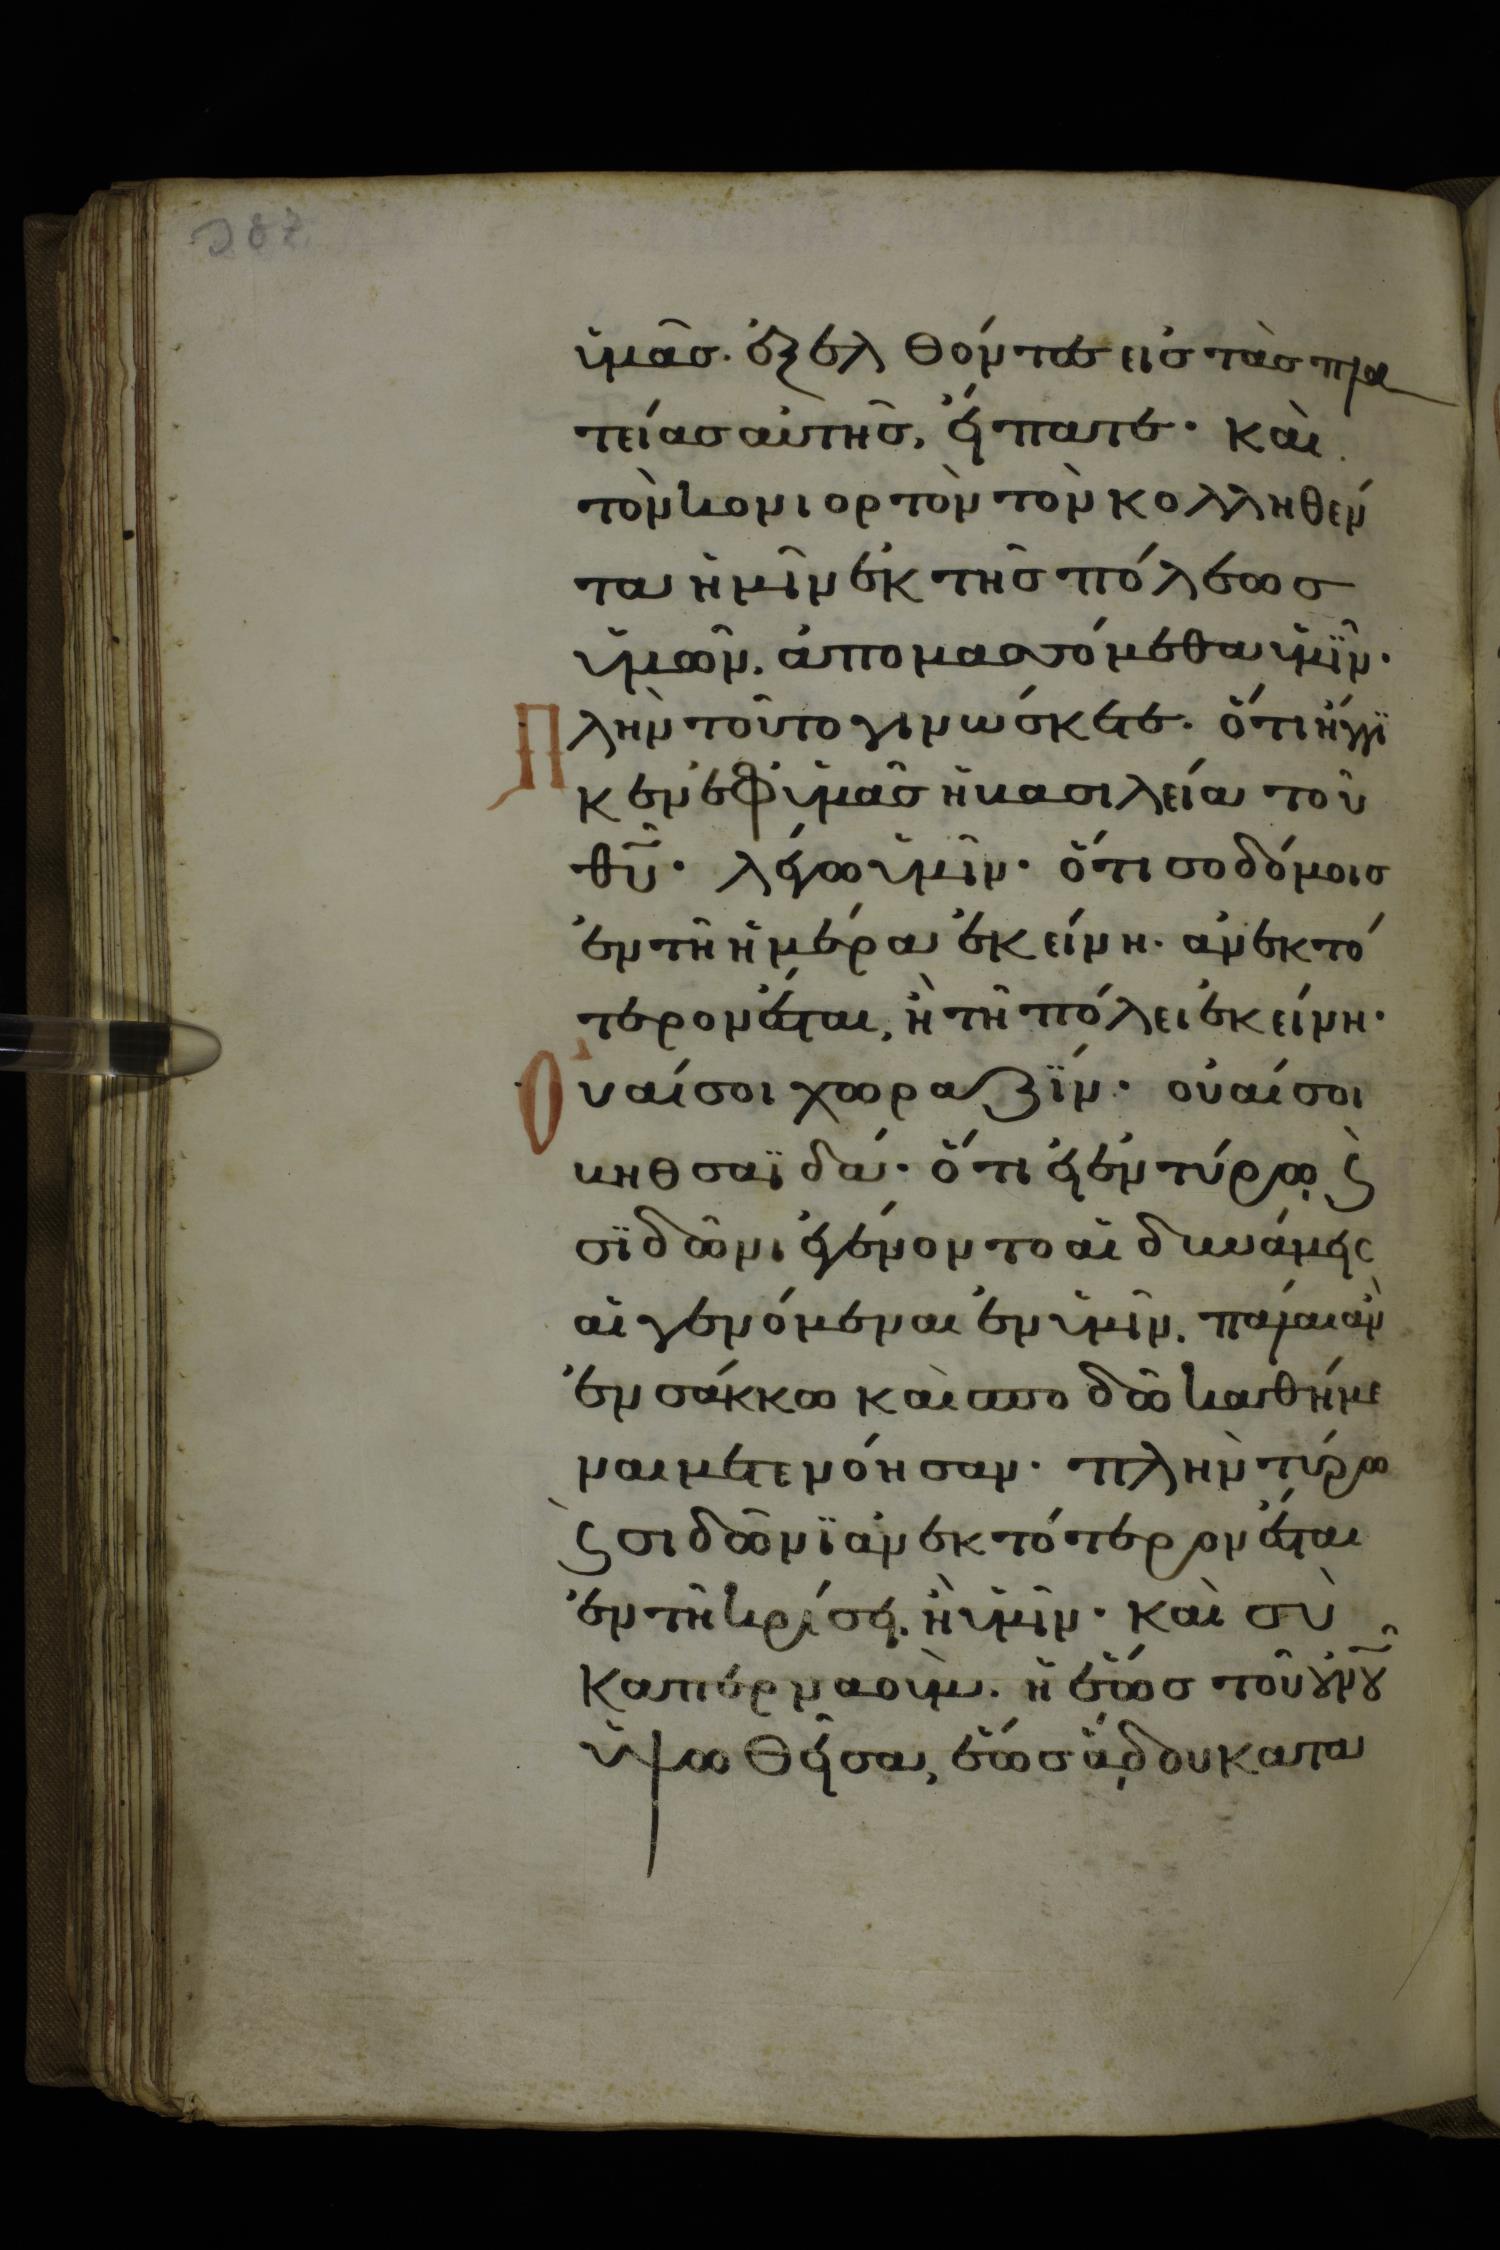 ὑμᾶσ. ἐξελθόντεσ εἰσ τὰσ πλα
τείασ αὐτῆσ, εἴπατε· καὶ
τὸν κονιορτὸν τὸν κολληθέν
τα ἡμῖν ἐκ τῆσ πόλεωσ
ὑμῶν. ἀπομασσόμεθα ὑμῖν·
Πλὴν τοῦτο γινώσκετε. ὅτι ἤγγϊ
κεν ἐφ ὑμᾶσ ἡ βασιλεία τοῦ
θυ̅. λέγω ὑμῖν· ὅτι σοδόμοισ
ἐν τῆ ἡμέρα ἐκείνη. ἀνεκτό
τερον ἔσται, ἢ τῆ πόλει ἐκείνη·
Ουαί σοι χωραζϊν· οὐαί σοι
βηθσαϊδά· ὅτι εἰ ἐν τύρω, ϛ
σϊδῶνι ἐγένοντο αἱ δυνάμεις
αἱ γενόμεναι ἐν ὑμῖν, πάλαι ἂν
ἐν σάκκω καὶ σποδῶ καθήμε
ναι μετενόησαν. πλὴν τύρω
ϛ σιδῶνϊ ἀνεκτότερον ἔσται
ἐν τῆ κρίσει, ἢ ὑμῖν· καὶ σὺ
καπερναοὺμ. ἡ ἕωσ τοῦ ου̅νου̅
ὑψωθεῖσα, ἕωσ ἅδου κατα